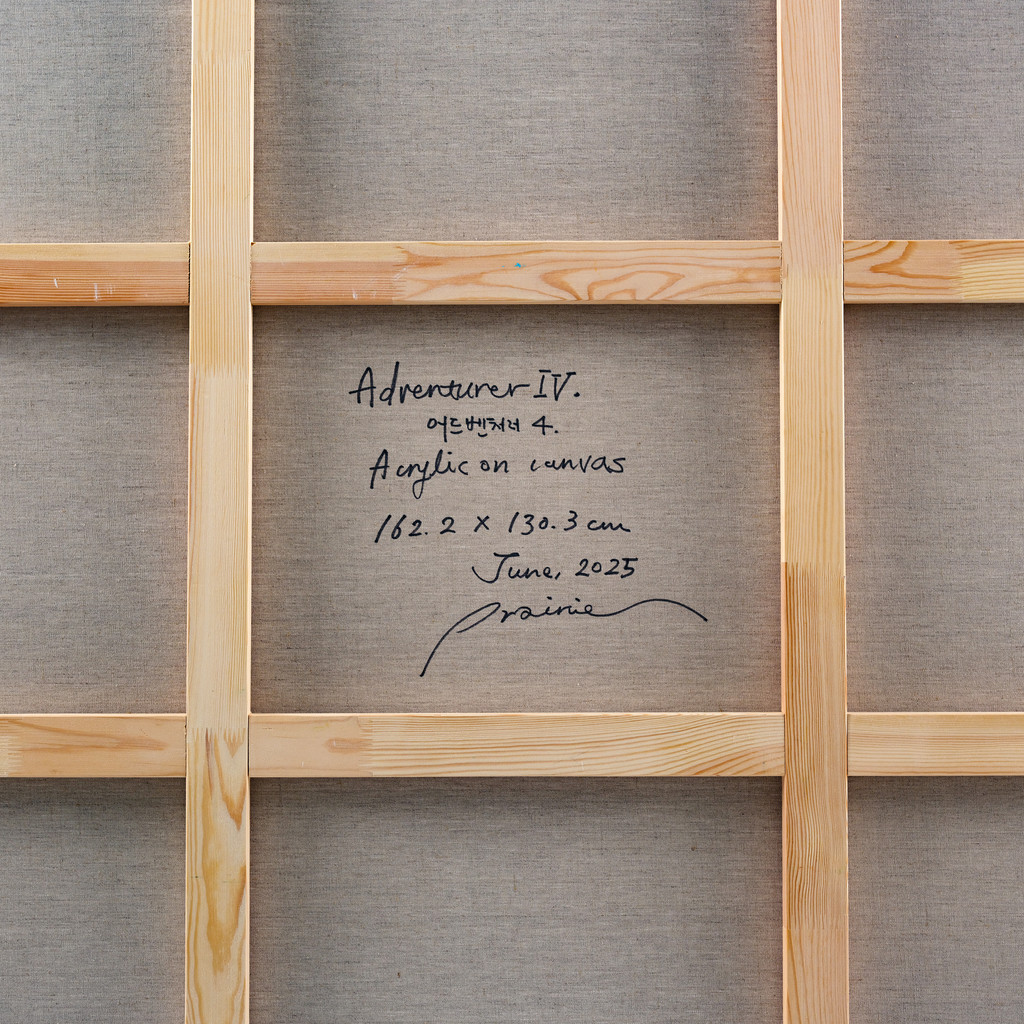 Adventurer IV.
어드벤처러 4.
Acrylic on canvas
162.2 × 130.3 cm
June, 2025
Prairie